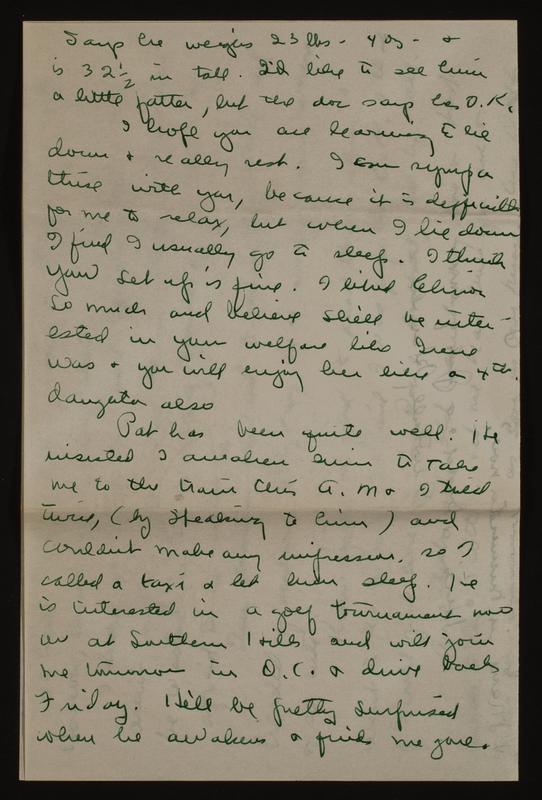 Says he weighs 23 lbs - 4 oz - &
is 32½ in tall. I'd like to see him
a little fatter, but the doc says he's O.K.
I hope you are learning to lie
down & really rest. I can sympa
thise with you, because it is difficult
for me to relax, but when I lie down
I find I usually go to sleep. I think
your set up is fine. I liked Elinor
so much and believe she'll be inter-
ested in your welfare like Irene
was & you will enjoy her like a 4th.
daugater also
Pat has been quite well. He
insisted I awaken him to take
me to the train this A.M & I tried
twice, (by speaking to him) and
couldn't make any impression, so I
called a taxi & let him sleep. He
is interested in a golf tournament now
on at Southern Hills and will join
me tomorrow in O.C. & drive back
Friday. He'll be pretty surprised
when he awakens & finds me gone.